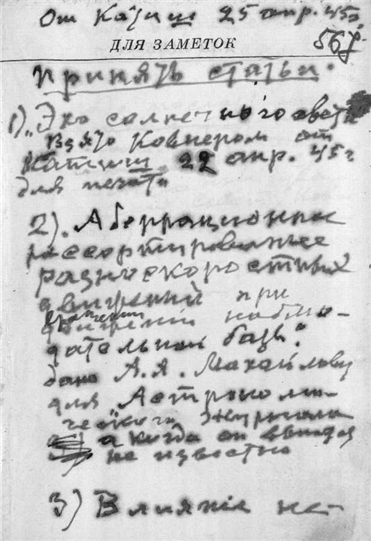 От Катиш 25 апр. 45г.
ДЛЯ ЗАМЕТОК
567.
принять статьи.
1). Эхо солнечного света
Взято Ковнером от
Катиш 22 апр. 45г
для печати
2). Аберрационное
рассортирование
разноскоростных
движений при
вращении
движении наблю-
дательной базы.
дано А. А. Михайлову
для Астрономи-
ческого журнала
а когда он
не известно
3) Влияние не-